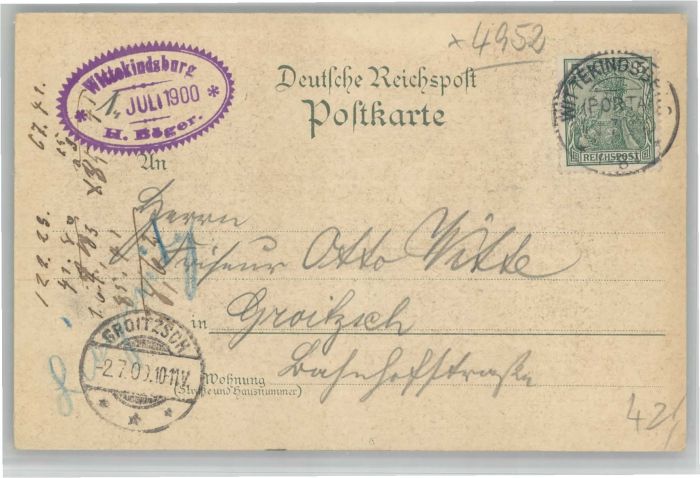 × 4952
Wittekindsburg
1. JULI 1900
H. Böger.
Deutsche Reichspost
Postkarte
WITTEKINDSB
(PORTA
REICHSPOST
An
Herrn
Friseur Otto Witte
in Groitzsch
Bahnhofstraße
Wohnung
(Straße und Hausnummer)
GROITZSCH
-2.7.00.10-11V.
* * *
Leipzig